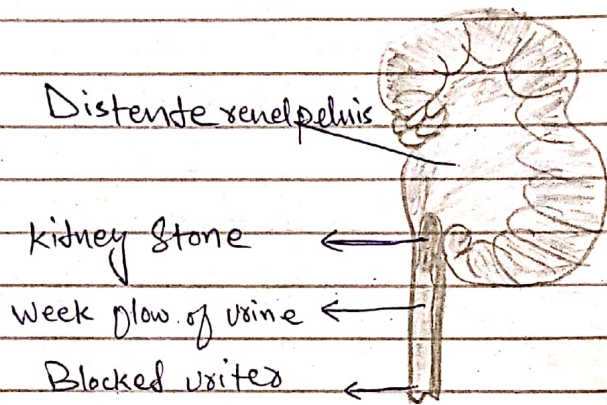 Distente renelpelvis
kidney Stone
Week flow of urine
Blocked uriter